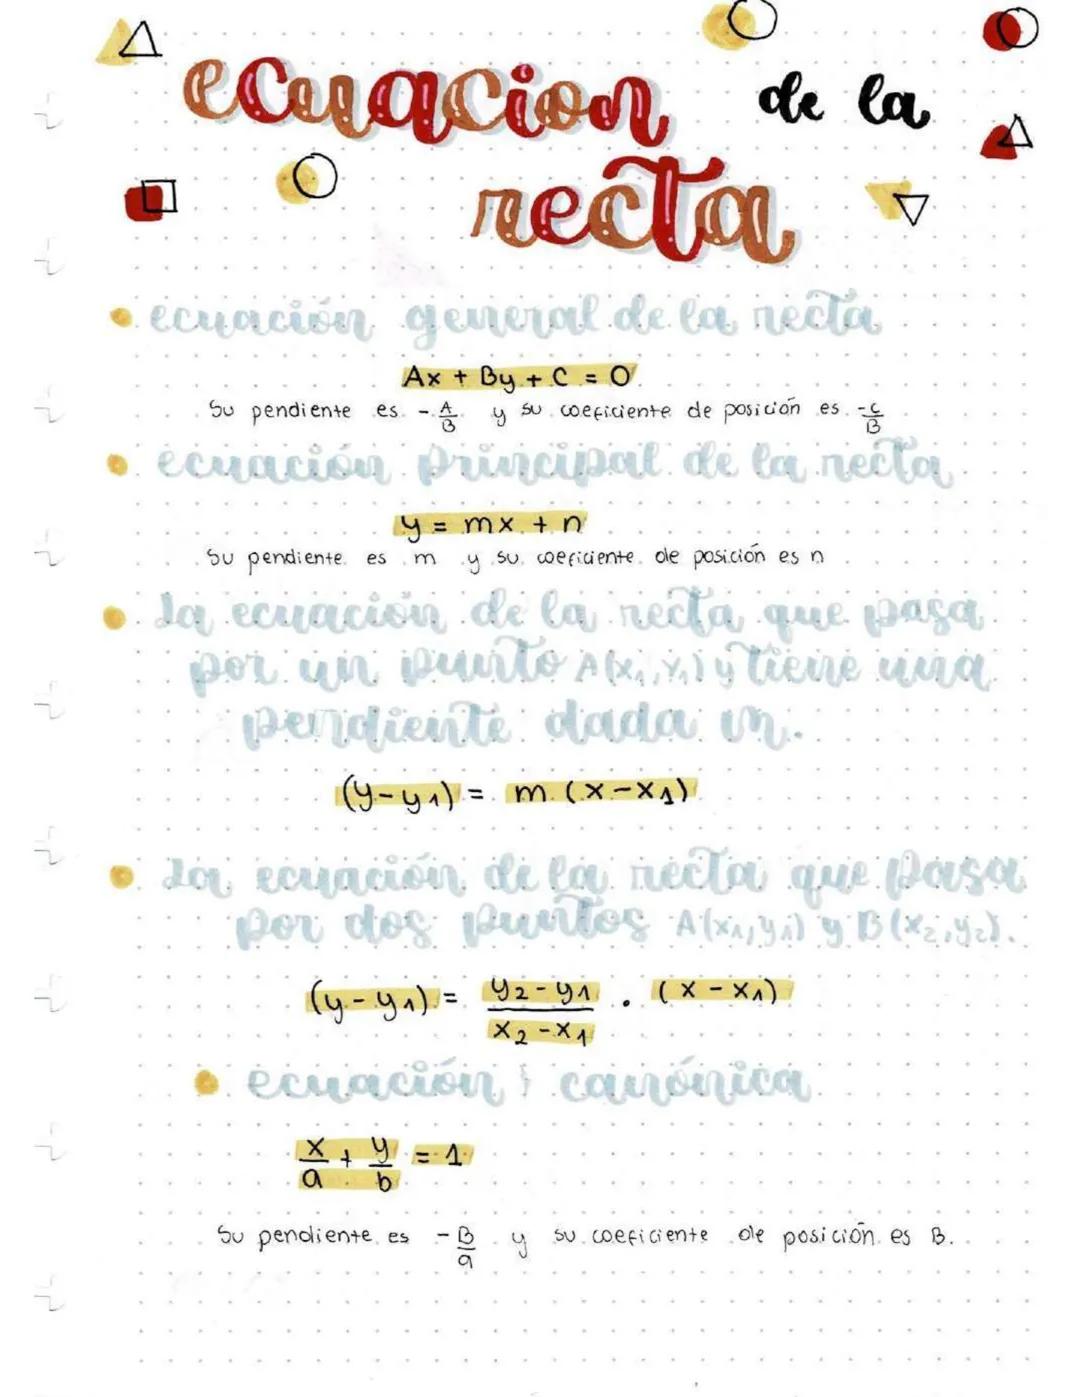 ecuacion de la
recta
ecuación general de la recta
Ax + By + C = 0
Su pendiente es -A/B y su coeficiente de posición es -C/B
ecuación principal de la recta
y = mx + n
Su pendiente es m y su coeficiente de posición es n
La ecuación de la recta que pasa
por un punto A(x₁, y₁) y tiene una
pendiente dada m.
(y-y₁) = m (x-x₁)
La ecuación de la recta que pasa
por dos puntos A(x₁,y₁) y B(x₂,y₂).
(y-y₁) = y₂-y₁/x₂-x₁ · (x-x₁)
ecuación canónica
x/a + y/b = 1
Su pendiente es -B/a y su coeficiente de posición es B.